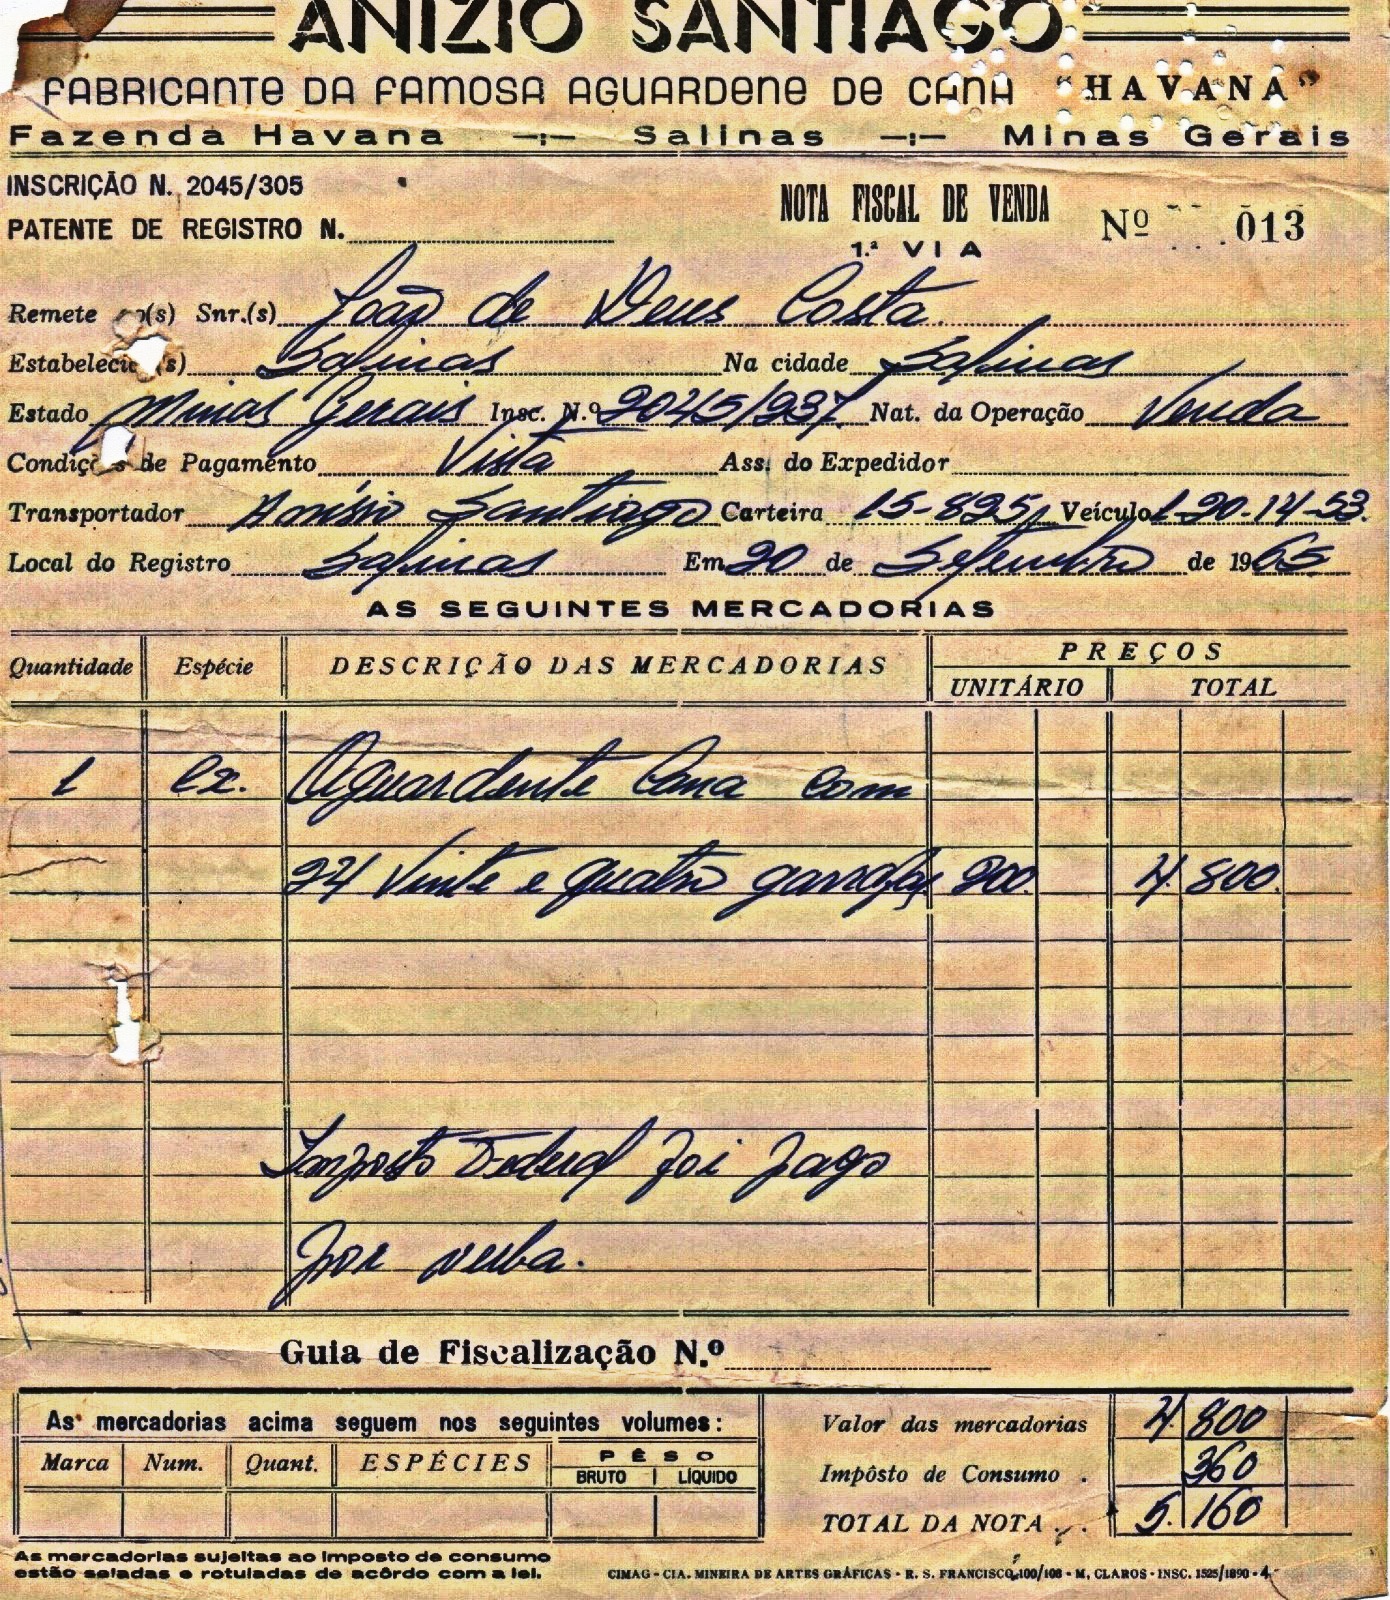 ANIZIO SANTIAGO
FABRICANTE DA FAMOSA AGUARDENE DE CANA "HAVANA"
Fazenda Havana —:— Salinas —:— Minas Gerais
INSCRIÇÃO N. 2045/305
PATENTE DE REGISTRO N.
NOTA FISCAL DE VENDA Nº 013
1.ª VIA
Remete ao(s) Snr.(s) João de Deus Costa
Estabelecido(s) Salinas Na cidade Salinas
Estado Minas Gerais Insc. N.º 2045/237 Nat. da Operação Venda
Condições de Pagamento Vista Ass. do Expedidor
Transportador Anísio Santiago Carteira 15-825 Veículo 1-20-14-53.
Local do Registro Salinas Em 20 de Setembro de 1965
AS SEGUINTES MERCADORIAS
Quantidade Espécie DESCRIÇÃO DAS MERCADORIAS PREÇOS
UNITÁRIO TOTAL
1 Cx. Aguardente Cana com
24 Vinte e quatro garrafas 200 4.800
Imposto Federal foi pago
por verba.
Guia de Fiscalização N.º
As mercadorias acima seguem nos seguintes volumes:
Marca Num. Quant. ESPÉCIES PÊSO
BRUTO LÍQUIDO
Valor das mercadorias 4.800
Impôsto de Consumo . 360
TOTAL DA NOTA . . 5.160
As mercadorias sujeitas ao imposto de consumo
estão seladas e rotuladas de acôrdo com a lei.
CIMAG - CIA. MINEIRA DE ARTES GRÁFICAS - R. S. FRANCISCO, 100/108 - M. CLAROS - INSC. 1525/1890 - 4